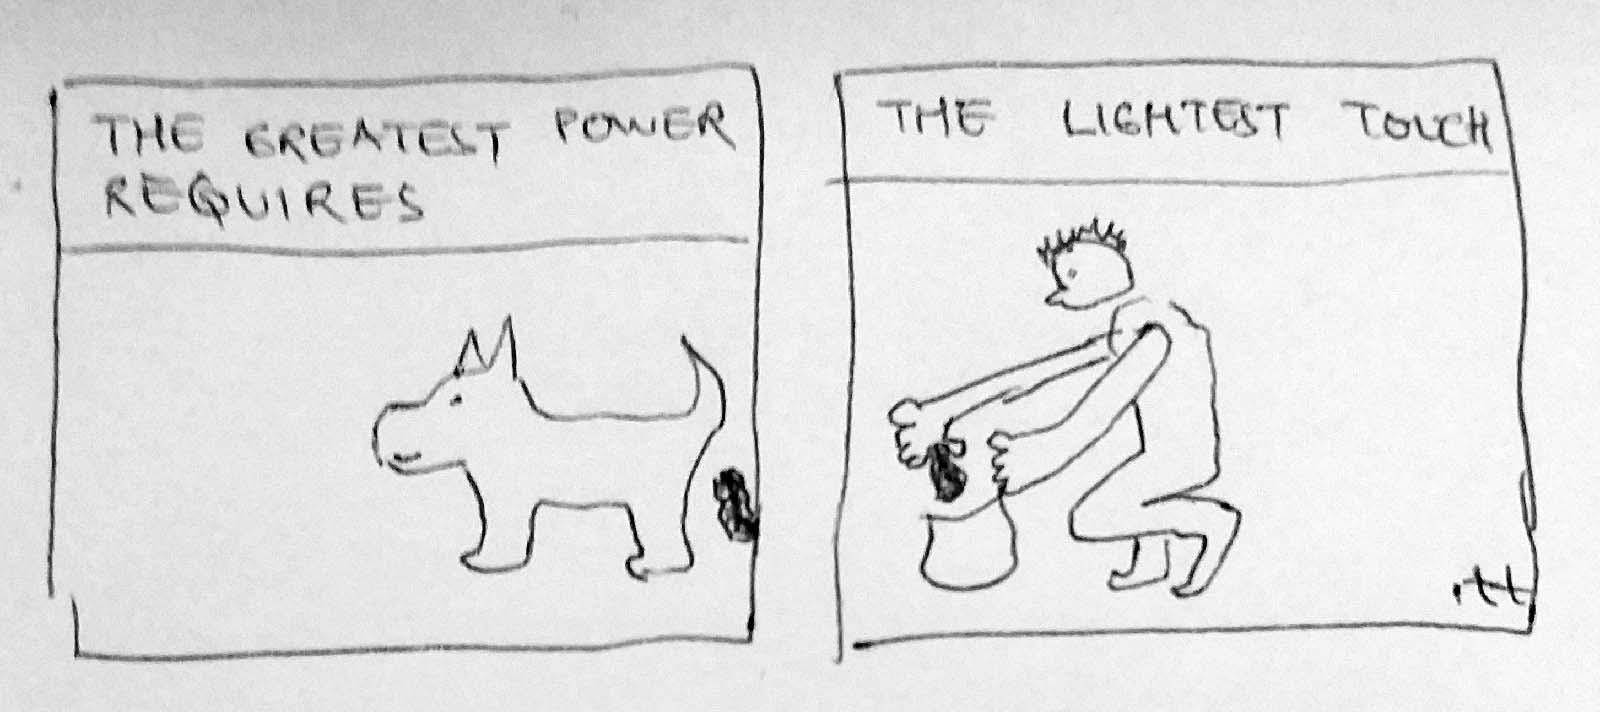 THE GREATEST POWER
REQUIRES
THE LIGHTEST TOUCH
.tt